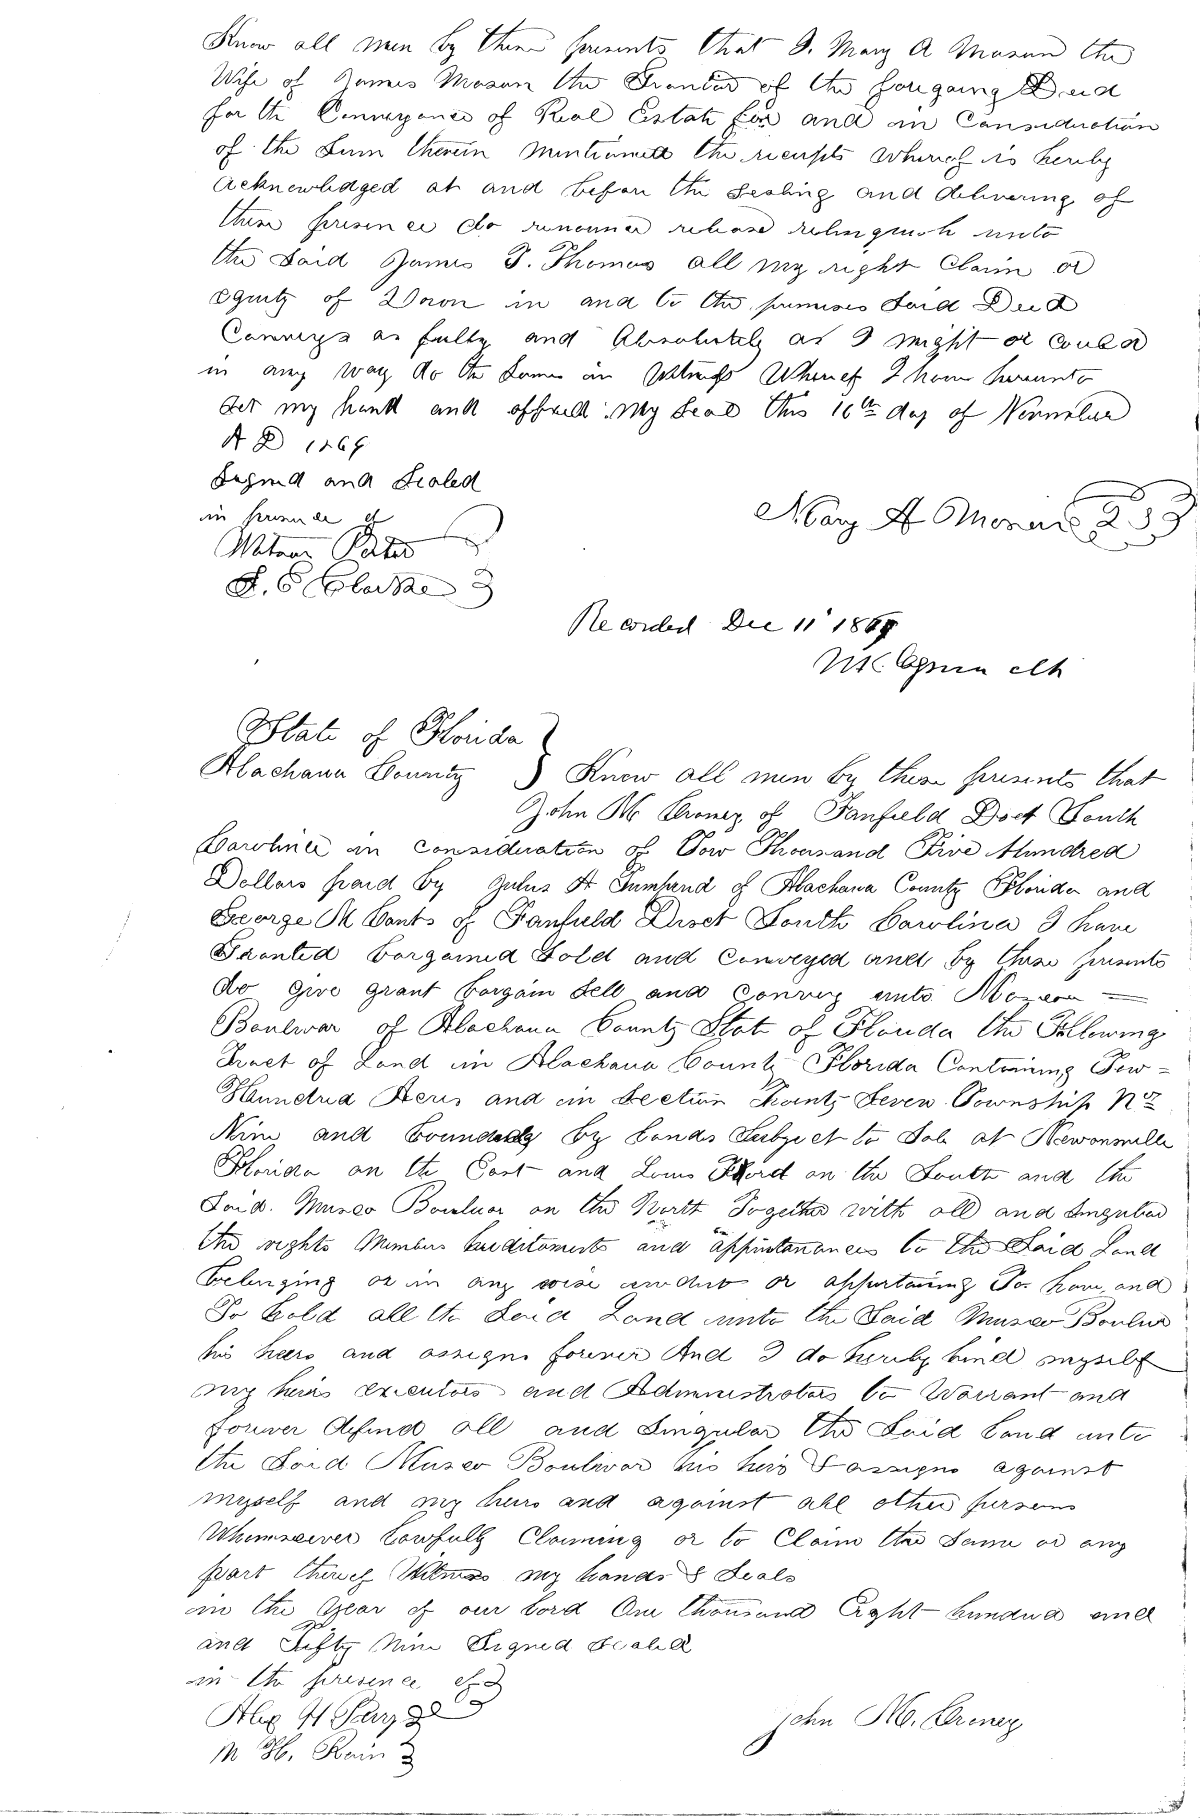 Know all men by these presents that I. Mary A Mason the
Wife of James Mason the Grantor of the foregoing Deed
for the Conveyance of Real Estate for and in Consideration
of the Sum therein mentioned the receipts whereof is hereby
acknowledged at and before the Sealing and delivering of
these presence do renounce release relinquish unto
the Said James T. Thomas all my right Claim or
equity of Dower in and to the premises Said Deed
Conveys as fully and Absolutely as I might or could
in any way do the Same in Witness Whereof I have hereunto
Set my hand and affixed my Seal this 16th day of November
A D 1869
Signed and Sealed
in presence of
Mary A Mason
S. C Clarke
Recorded Dec 11 1869
State of Florida
Alachaua County } Know all men by these presents that
John M Croney of Fanfield Dsct South
Carolina in consideration of Tow Thousand Five Hundred
Dollars paid by Julus A of Alachaua County Florida and
George M of Fanfield Disct South Carolina I have
Granted bargained Sold and Conveyed and by these presents
do give grant bargain Sell and Convey unto
Boulwar of Alachaua County State of Florida the Following
Tract of Land in Alachaua County Florida Containing Tow =
Hunndred Acres and in Section Twenty Seven Township No
Nine and bounded by Lands Subject to Sale at Newonsville
Florida on the East and Louis on the South and the
Said. Museo Boulwar on the North Together with all and Singular
the rights Members hereditaments and appurtanances to the Said Land
belonging or in any wise incident or appertaining To have and
To hold all the Said Land unto the Said Museo Boulwar
his heirs and assigns forever And I do hereby bind myself
my heirs executors and Administrators to Warrant and
forever defend all and Singular the Said Land unto
the Said Museo Boulwar his heirs & assigns against
myself and my heirs and against all other persons
Whomsoever Lawfully Claiming or to Claim the Same or any
part thereof Witness my hands & Seals
in the Year of our Lord One thousand Eight hundred and
and Fifty Nine Signed Sealed
in the presence of
John M. Croney
M H.